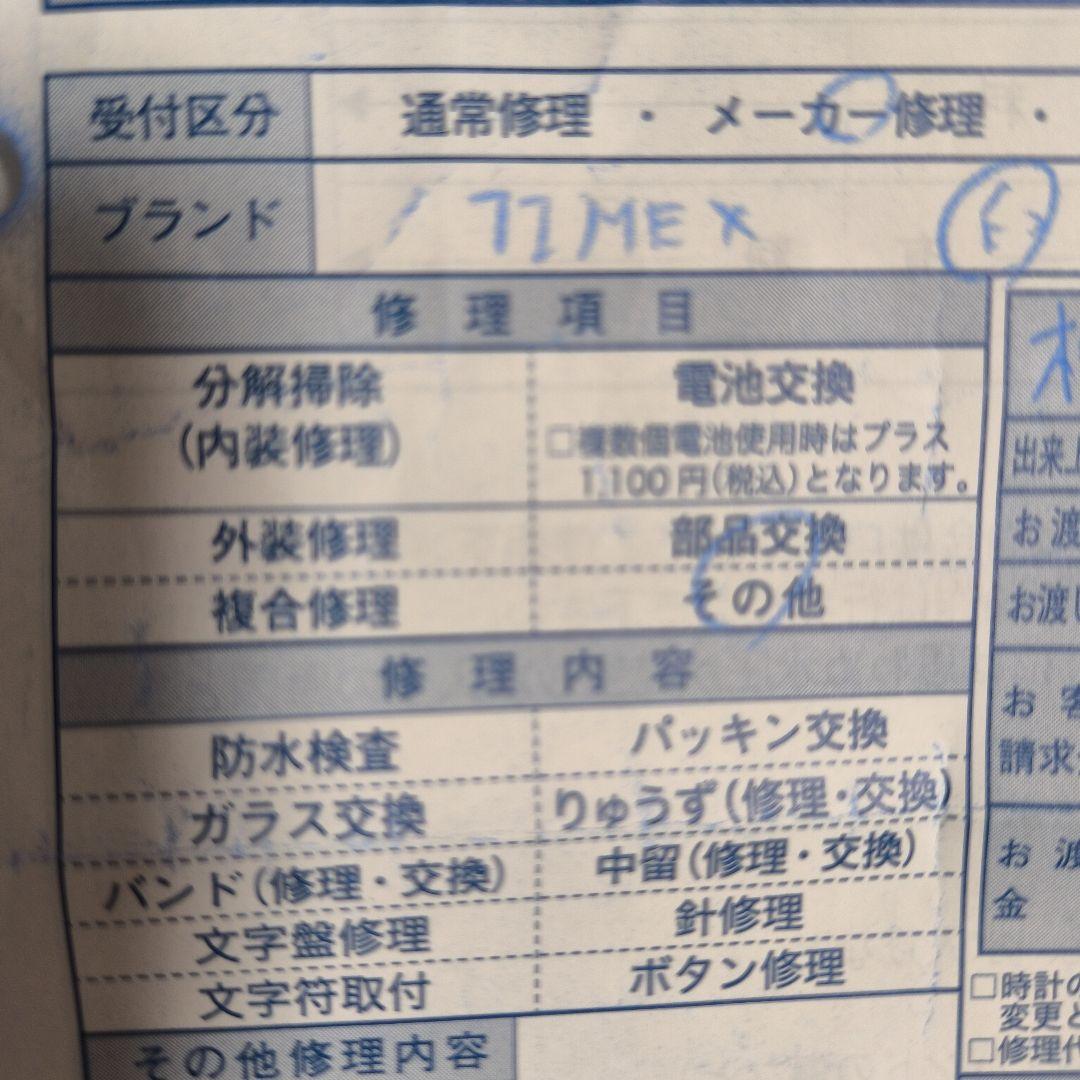 受付区分 通常修理 ・ メーカー修理 ・
ブランド TIMEX
修理項目
分解掃除 電池交換
(内装修理) □複数個電池使用時はプラス
1,100円(税込)となります。
外装修理 部品交換
複合修理 その他
修理内容
防水検査 パッキン交換
ガラス交換 りゅうず(修理・交換)
バンド(修理・交換) 中留(修理・交換)
文字盤修理 針修理
文字符取付 ボタン修理
その他修理内容
出来上
お渡
お渡し
お客
請求
お渡
金
□時計の
変更と
□修理代